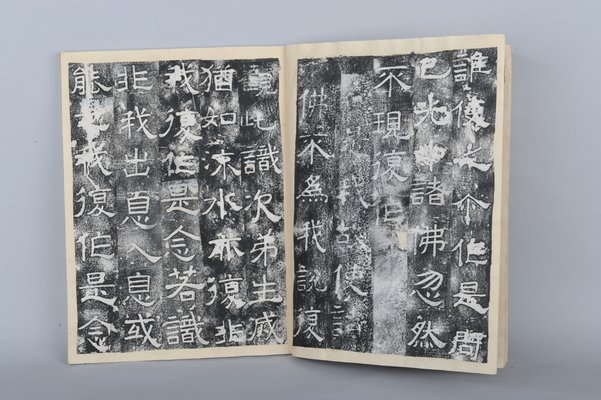 誰使之尒作是問
已光中諸佛忽然
不現復作
我故使諸
佛不為我說復
觀此識次弟生滅
猶如流水亦復非
我復作是念若識
非我出息入息或
能是我復作是念